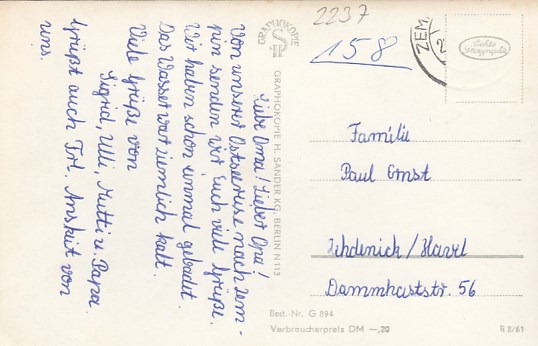 Liebe Oma! Lieber Opa!
Von unserer Ostseereise nach Zem-
pin senden wir Euch viele Grüße.
Wir haben schon einmal gebadet.
Das Wasser war ziemlich kalt.
Viele Grüße von
Sigrid, Ulli, Mutti u. Papa.
Grüßt auch Frl. von
uns.
GRAPHOKOPIE
GRAPHOKOPIE H. SANDER KG. BERLIN N 113
2237
158
ZEM
Echte
Familie
Paul Ernst
Zehdenick / Havel
Dammhaststr. 56
Best.-Nr. G 894
Verbraucherpreis DM —,20
R 8/61